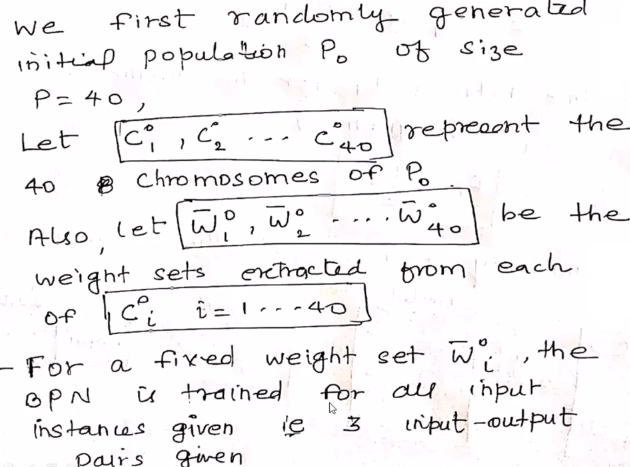 We first randomly generated
initial population P₀ of size
P = 40,
Let C₁⁰, C₂⁰ --- C₄₀⁰ represont the
40 Chromosomes of P₀
Also, let W̄₁⁰, W̄₂⁰ ---- W̄₄₀⁰ be the
weight sets extracted from each
of C⁰ᵢ i = 1 --- 40
- For a fixed weight set W̄ᵢ⁰, the
BPN is trained for all input
instances given ie 3 input-output
pairs given